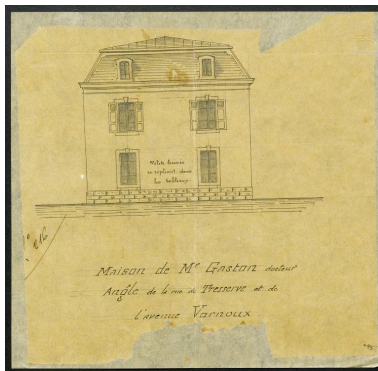 Volets brisés
se repliant dans
les tableaux
216
Maison de Mr Gaston docteur
Angle de la rue de Tresserve et de
l'avenue Varnoux